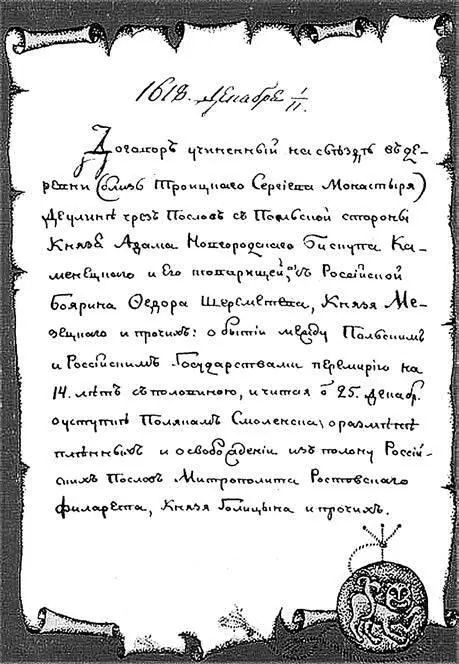 1618. Декабря 1/11.
Договоръ учиненный на съѣздѣ въ де-
ревни (близь Троицкаго Сергіева Монастыря)
Деулинѣ чрез Пословъ съ Польской стороны
Князя Адама Новгородскаго Бискупа Ка-
менецкаго и Его товарищей, съ Россійской
Боярина Ѳедора Шереметева, Князя Ме-
зецкаго и прочихъ: о бытіи между Польскимъ
и Россійскимъ Государствами перемирію на
14. лѣтъ съ половиною, и читая о 25. Декабр.
о уступкѣ Полякамъ Смоленска, о размѣнѣ
плѣнныхъ и о свобожденіи изъ полону Россій-
скихъ Пословъ Митрополита Ростовскаго
Филарета, Князя Голицына и прочихъ.